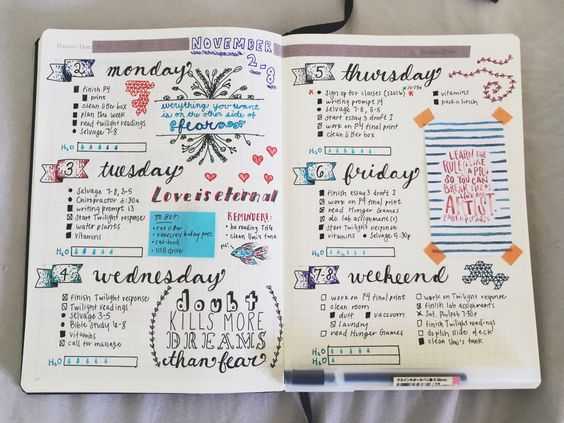 NOVEMBER
2-8
2 monday
finish P4
print
clean litter box
plan the week
read twilight readings
Selvage 7-8
H2O
everything you want
is on the other side of
fear
3 tuesday
Selvage 7-8, 3-5
Chiropractor 6:30a
writing prompt 13
Start Twilight response
water plants
vitamins
H2O
Love is eternal
TO BUY:
USB drive
REMINDERS:
be reading Title
clean Uni's tank
4 wednesday
finish Twilight response
Twilight readings
Selvage 3-5
Bible Study 6-8
vitamins
call for massage
H2O
doubt
KILLS MORE
DREAMS
than fear
5 thursday
sign up for classes
writing prompt 14
Selvage 7-8, 5-8
Start essay 3 draft 2
work on P4 final print
clean litter box
vitamins
pack a lunch
H2O
6 friday
finish essay 3 draft 2
work on P4 final print
read Hunger Games
do lab assignment(s)
Start Twilight response
vitamins
Selvage 5-9p
H2O
LEARN THE
RULES LIKE A
PRO SO YOU CAN
BREAK THEM
LIKE AN
ARTIST
7-8 weekend
work on P4 final print
clean room
dust
vaccuom
laundry
read Hunger Games
work on Twilight response
finish lab assignments
finish Twilight readings
clean Uni's tank
H2O